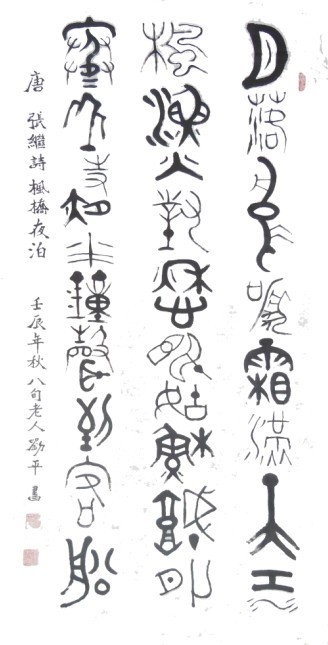 月落烏啼霜滿天江
楓漁火對愁眠姑蘇城外
寒山寺夜半鐘聲到客船
唐 張繼詩楓橋夜泊 壬辰年秋八旬老人平書